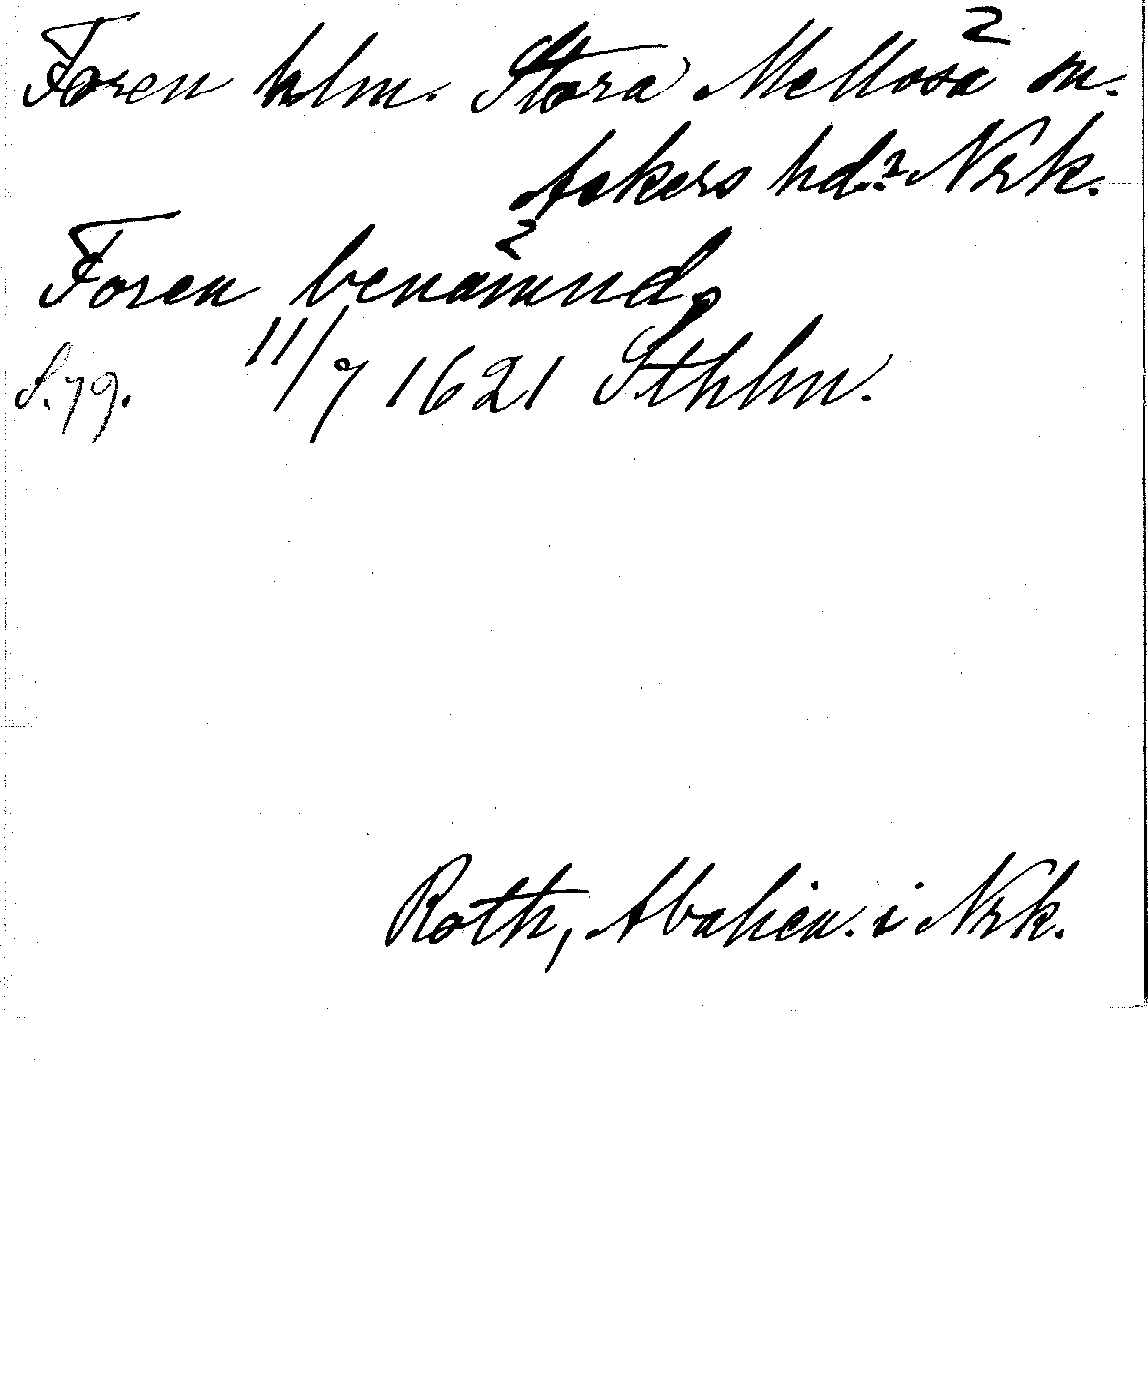 Foren hlm. Stora Mellosa sn.
Askers hd. Nrk.
Foren benämnd,
S. 79. 11/7 1621 Sthlm.
Roth, i Nrk.